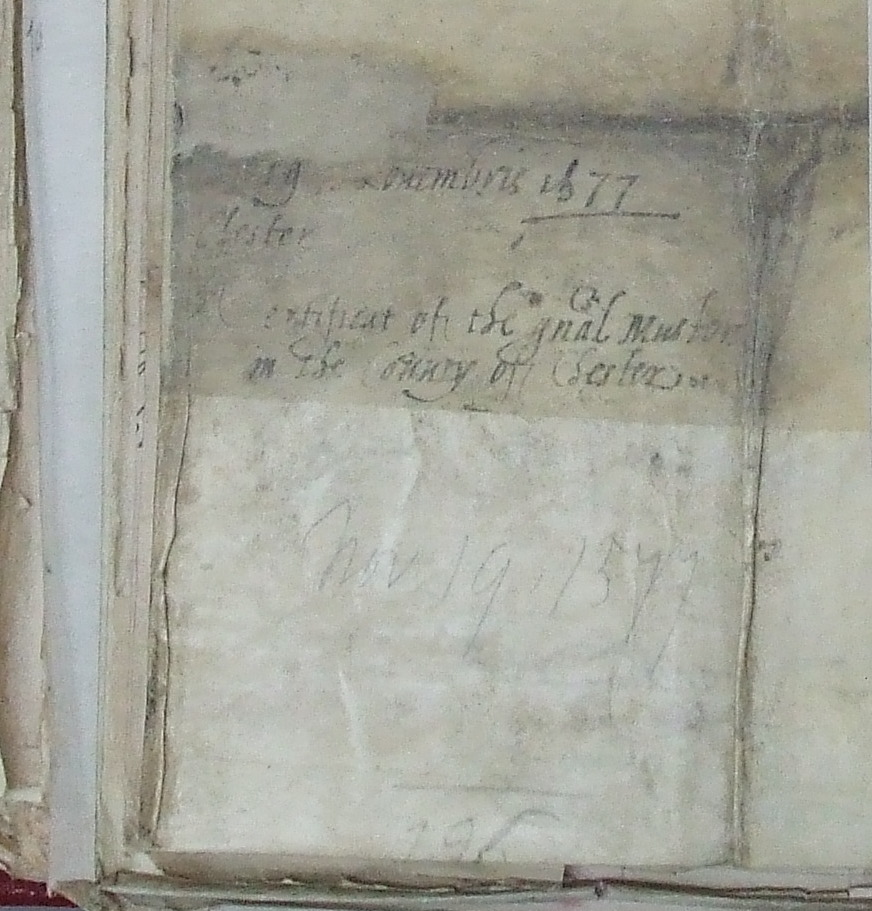 19 Nouembris 1577
Chester
Certificat of the gnãl muster
in the County of Chester
Nov 19. 1577